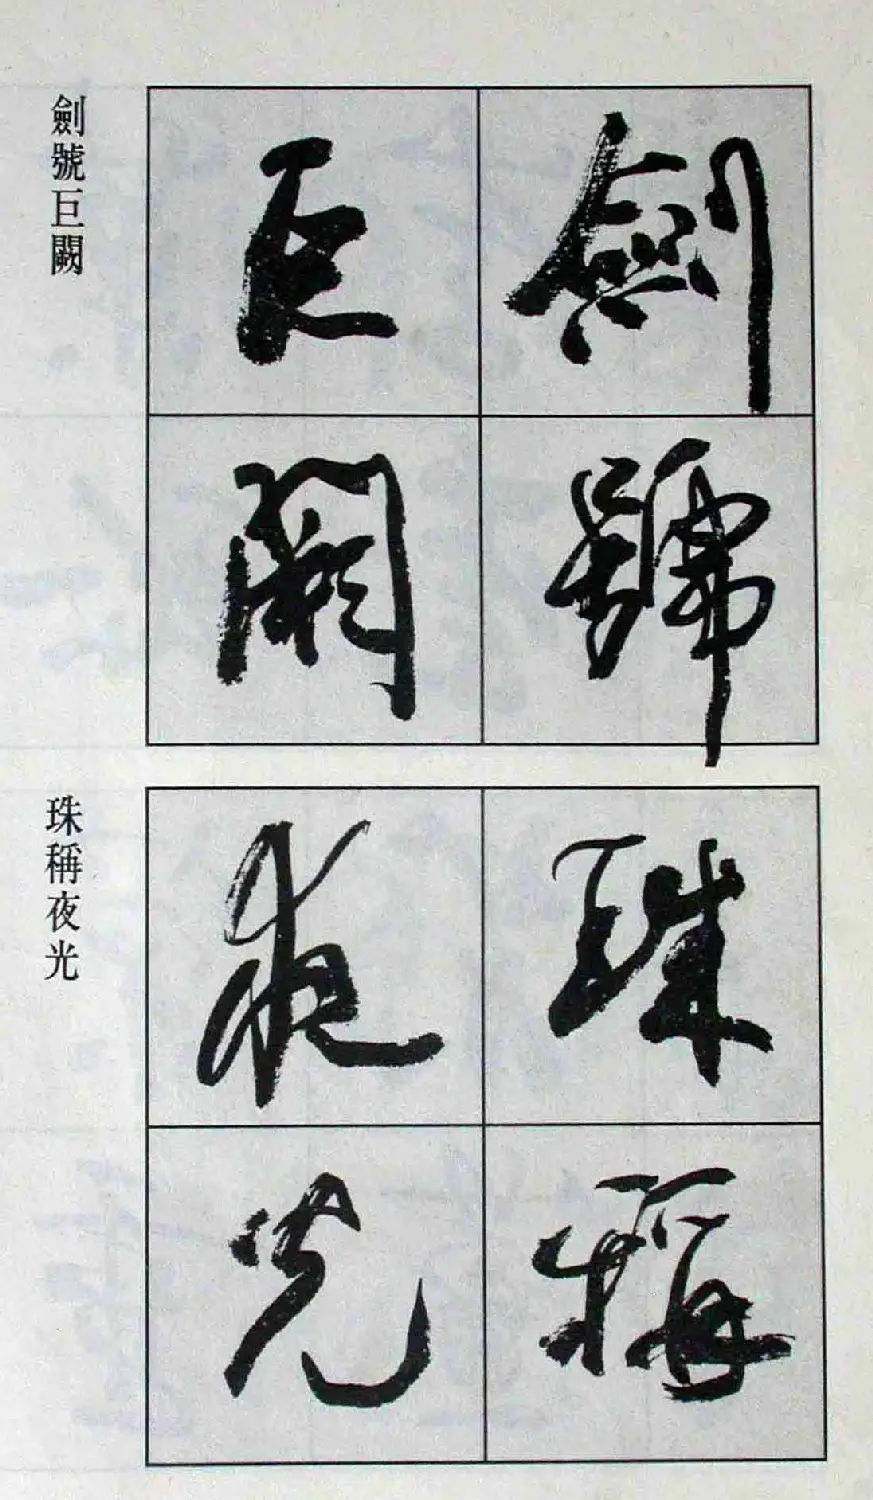 劍號
巨闕
劍號巨闕
珠稱
夜光
珠稱夜光